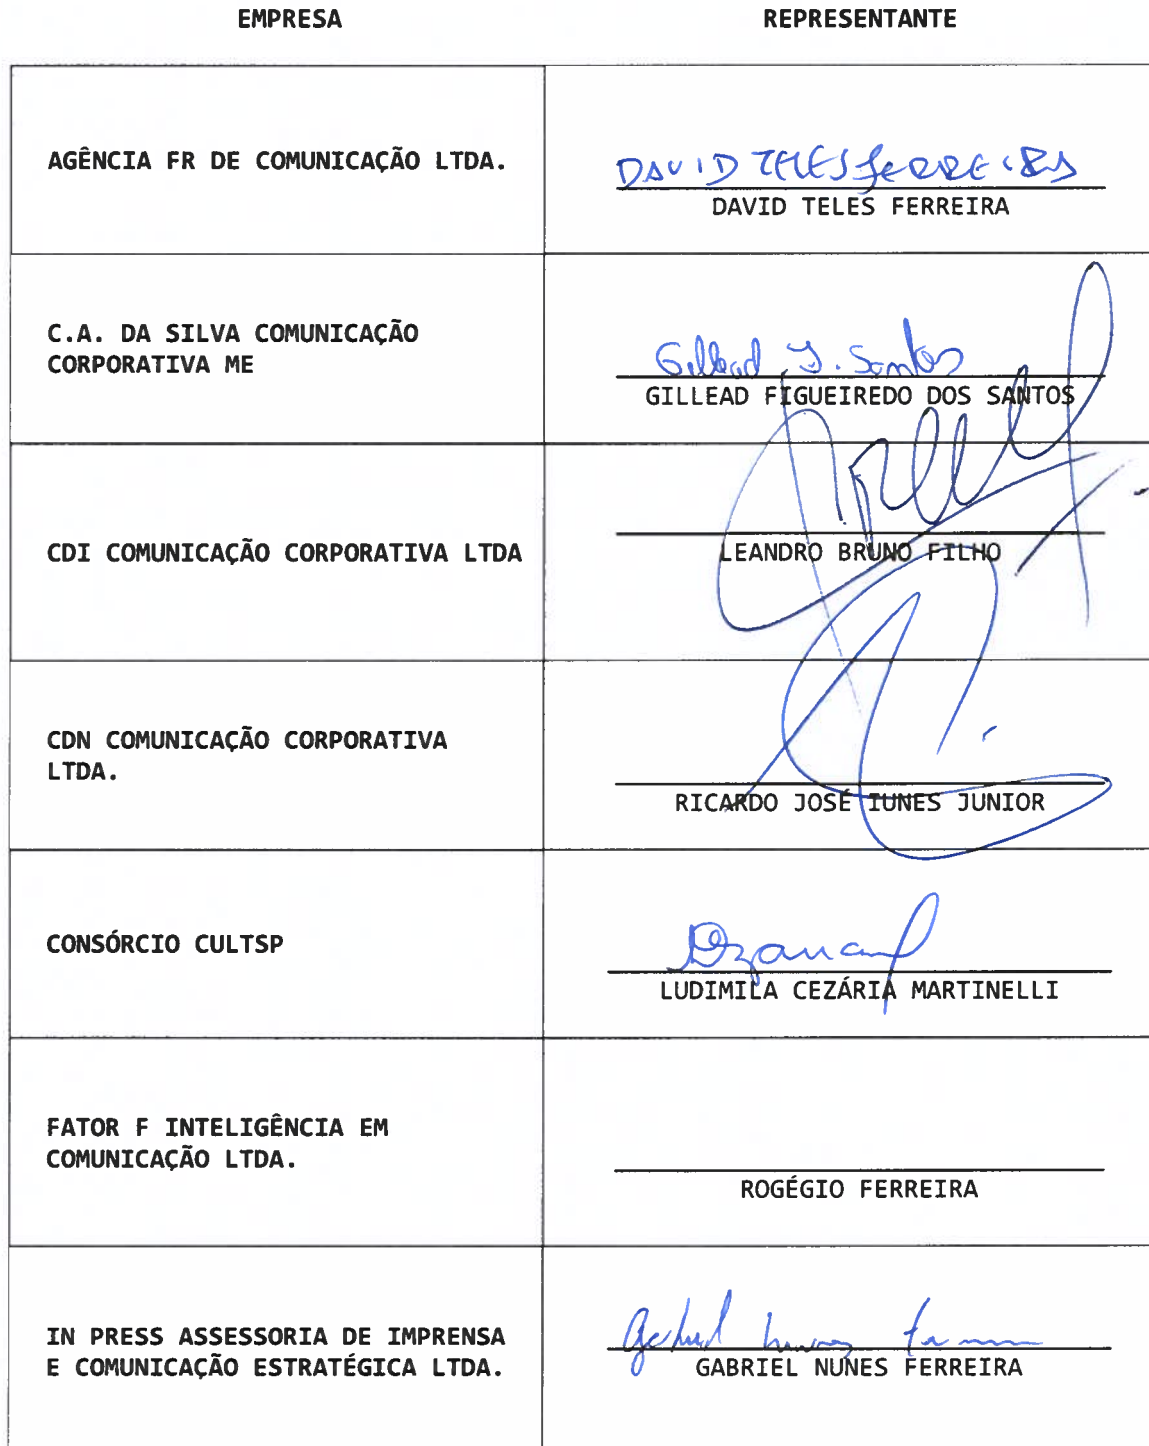 EMPRESA REPRESENTANTE
AGÊNCIA FR DE COMUNICAÇÃO LTDA.
DAVID TELES FERREIRA
DAVID TELES FERREIRA
C.A. DA SILVA COMUNICAÇÃO
CORPORATIVA ME
Gillead F. Santos
GILLEAD FIGUEIREDO DOS SANTOS
CDI COMUNICAÇÃO CORPORATIVA LTDA
LEANDRO BRUNO FILHO
CDN COMUNICAÇÃO CORPORATIVA
LTDA.
RICARDO JOSÉ IUNES JUNIOR
CONSÓRCIO CULTSP
LUDIMILA CEZÁRIA MARTINELLI
FATOR F INTELIGÊNCIA EM
COMUNICAÇÃO LTDA.
ROGÉGIO FERREIRA
IN PRESS ASSESSORIA DE IMPRENSA
E COMUNICAÇÃO ESTRATÉGICA LTDA.
Gabriel Nunes Ferreira
GABRIEL NUNES FERREIRA